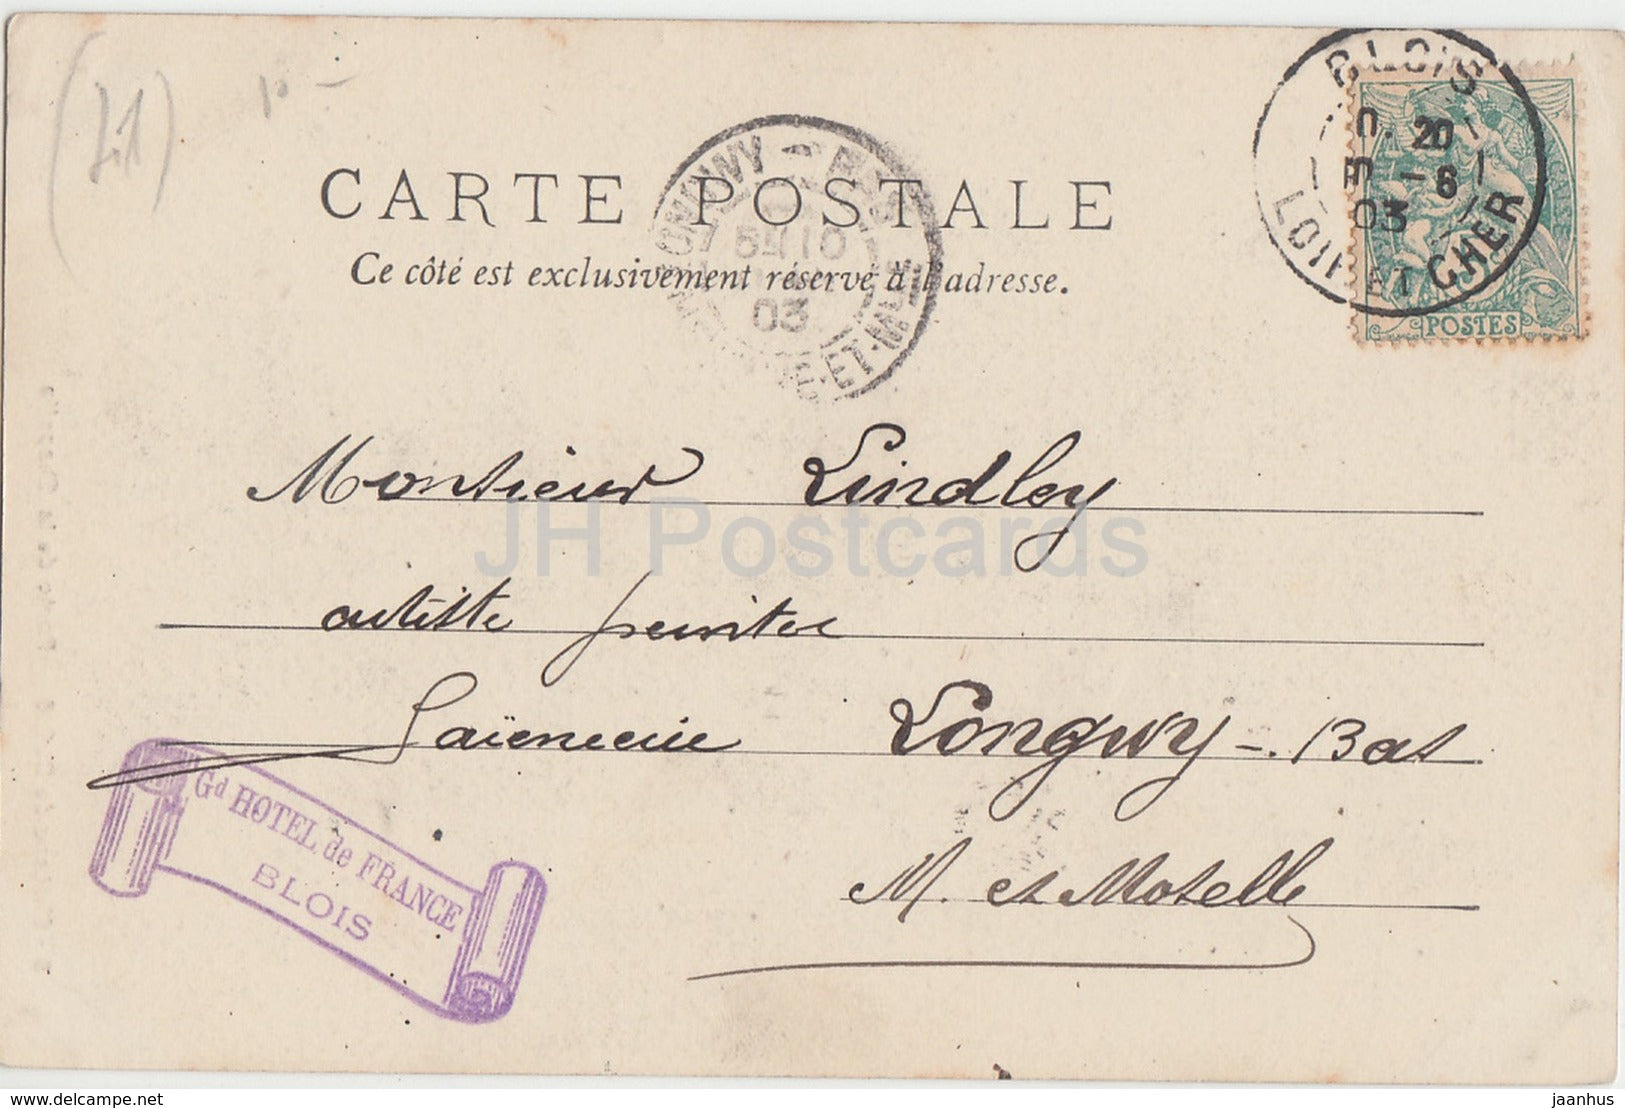 (41)
10 -
CARTE POSTALE
Ce côté est exclusivement réservé à l'adresse.
BLOIS
20
-6
03
LOIR ET CHER
POSTES
LONGWY - BAS
10
03
ET-M
Monsieur Lindley
artiste peintre
Faïencerie Longwy - Bas
M. et Moselle
Gd HOTEL de FRANCE
BLOIS
JH Postcards
www.delcampe.net
jaanhus